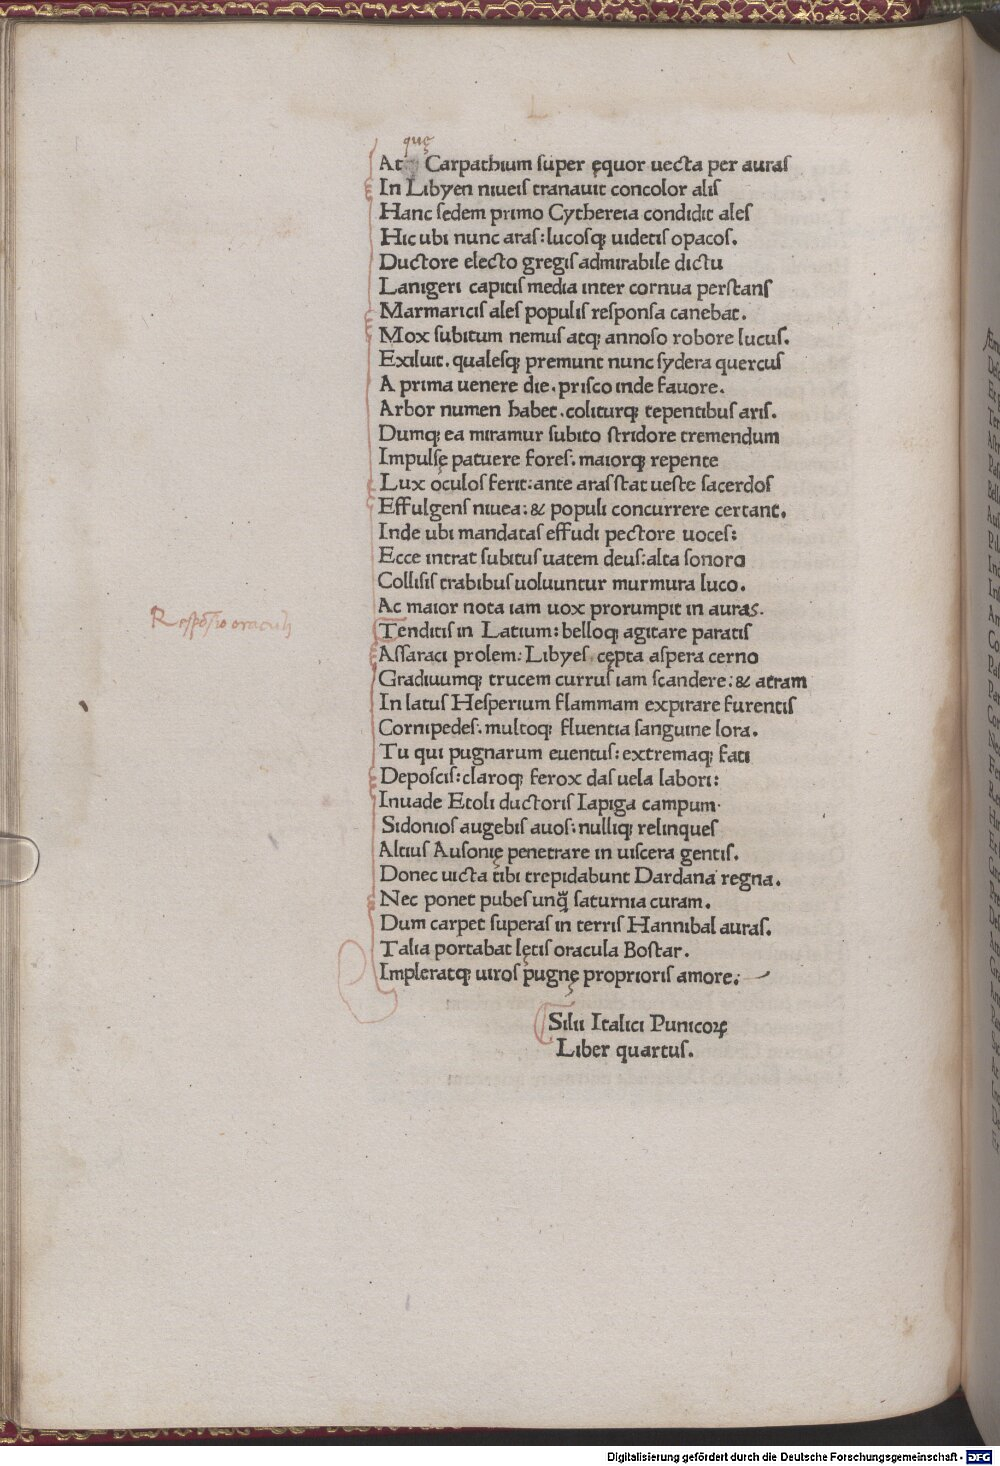 quę
At Carpathium super ęquor uecta per auras
In Libyen niueis tranauit concolor alis
Hanc sedem primo Cythereia condidit ales
Hic ubi nunc aras: lucosq; uidetis opacos.
Ductore electo gregis admirabile dictu
Lanigeri capitis media inter cornua perstans
Marmaricis ales populis responsa canebat.
Mox subitum nemus atq; annoso robore lucus.
Exiluit. qualesq; premunt nunc sydera quercus
A prima uenere die. prisco inde fauore.
Arbor numen habet. coliturq; tepentibus aris.
Dumq; ea miramur subito stridore tremendum
Impulsę patuere fores. maiorq; repente
Lux oculos ferit: ante aras stat ueste sacerdos
Effulgens niuea: & populi concurrere certant.
Inde ubi mandatas effudi pectore uoces:
Ecce intrat subitus uatem deus: alta sonoro
Collisis trabibus uoluuntur murmura luco.
Ac maior nota iam uox prorumpit in auras.
Respōsio oraculi
Tenditis in Latium: belloq; agitare paratis
Assaraci prolem: Libyes cępta aspera cerno
Gradiuumq; trucem currus iam scandere: & atram
In latus Hesperium flammam expirare furentis
Cornipedes. multoq; fluentia sanguine lora.
Tu qui pugnarum euentus: extremaq; fati
Deposcis: claroq; ferox das uela labori:
Inuade Etoli ductoris Iapiga campum.
Sidonios augebis auos: nulliq; relinques
Altius Ausonię penetrare in uiscera gentis.
Donec uicta tibi trepidabunt Dardana regna.
Nec ponet pubes unq̄ saturnia curam.
Dum carpet superas in terris Hannibal auras.
Talia portabat lętis oracula Bostar.
Impleratq; uiros pugnę proprioris amore:
Silii Italici Punicoꝝ
Liber quartus.
Digitalisierung gefördert durch die Deutsche Forschungsgemeinschaft - DFG